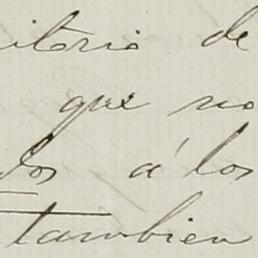 itorio de
que no
dos á los
tambien